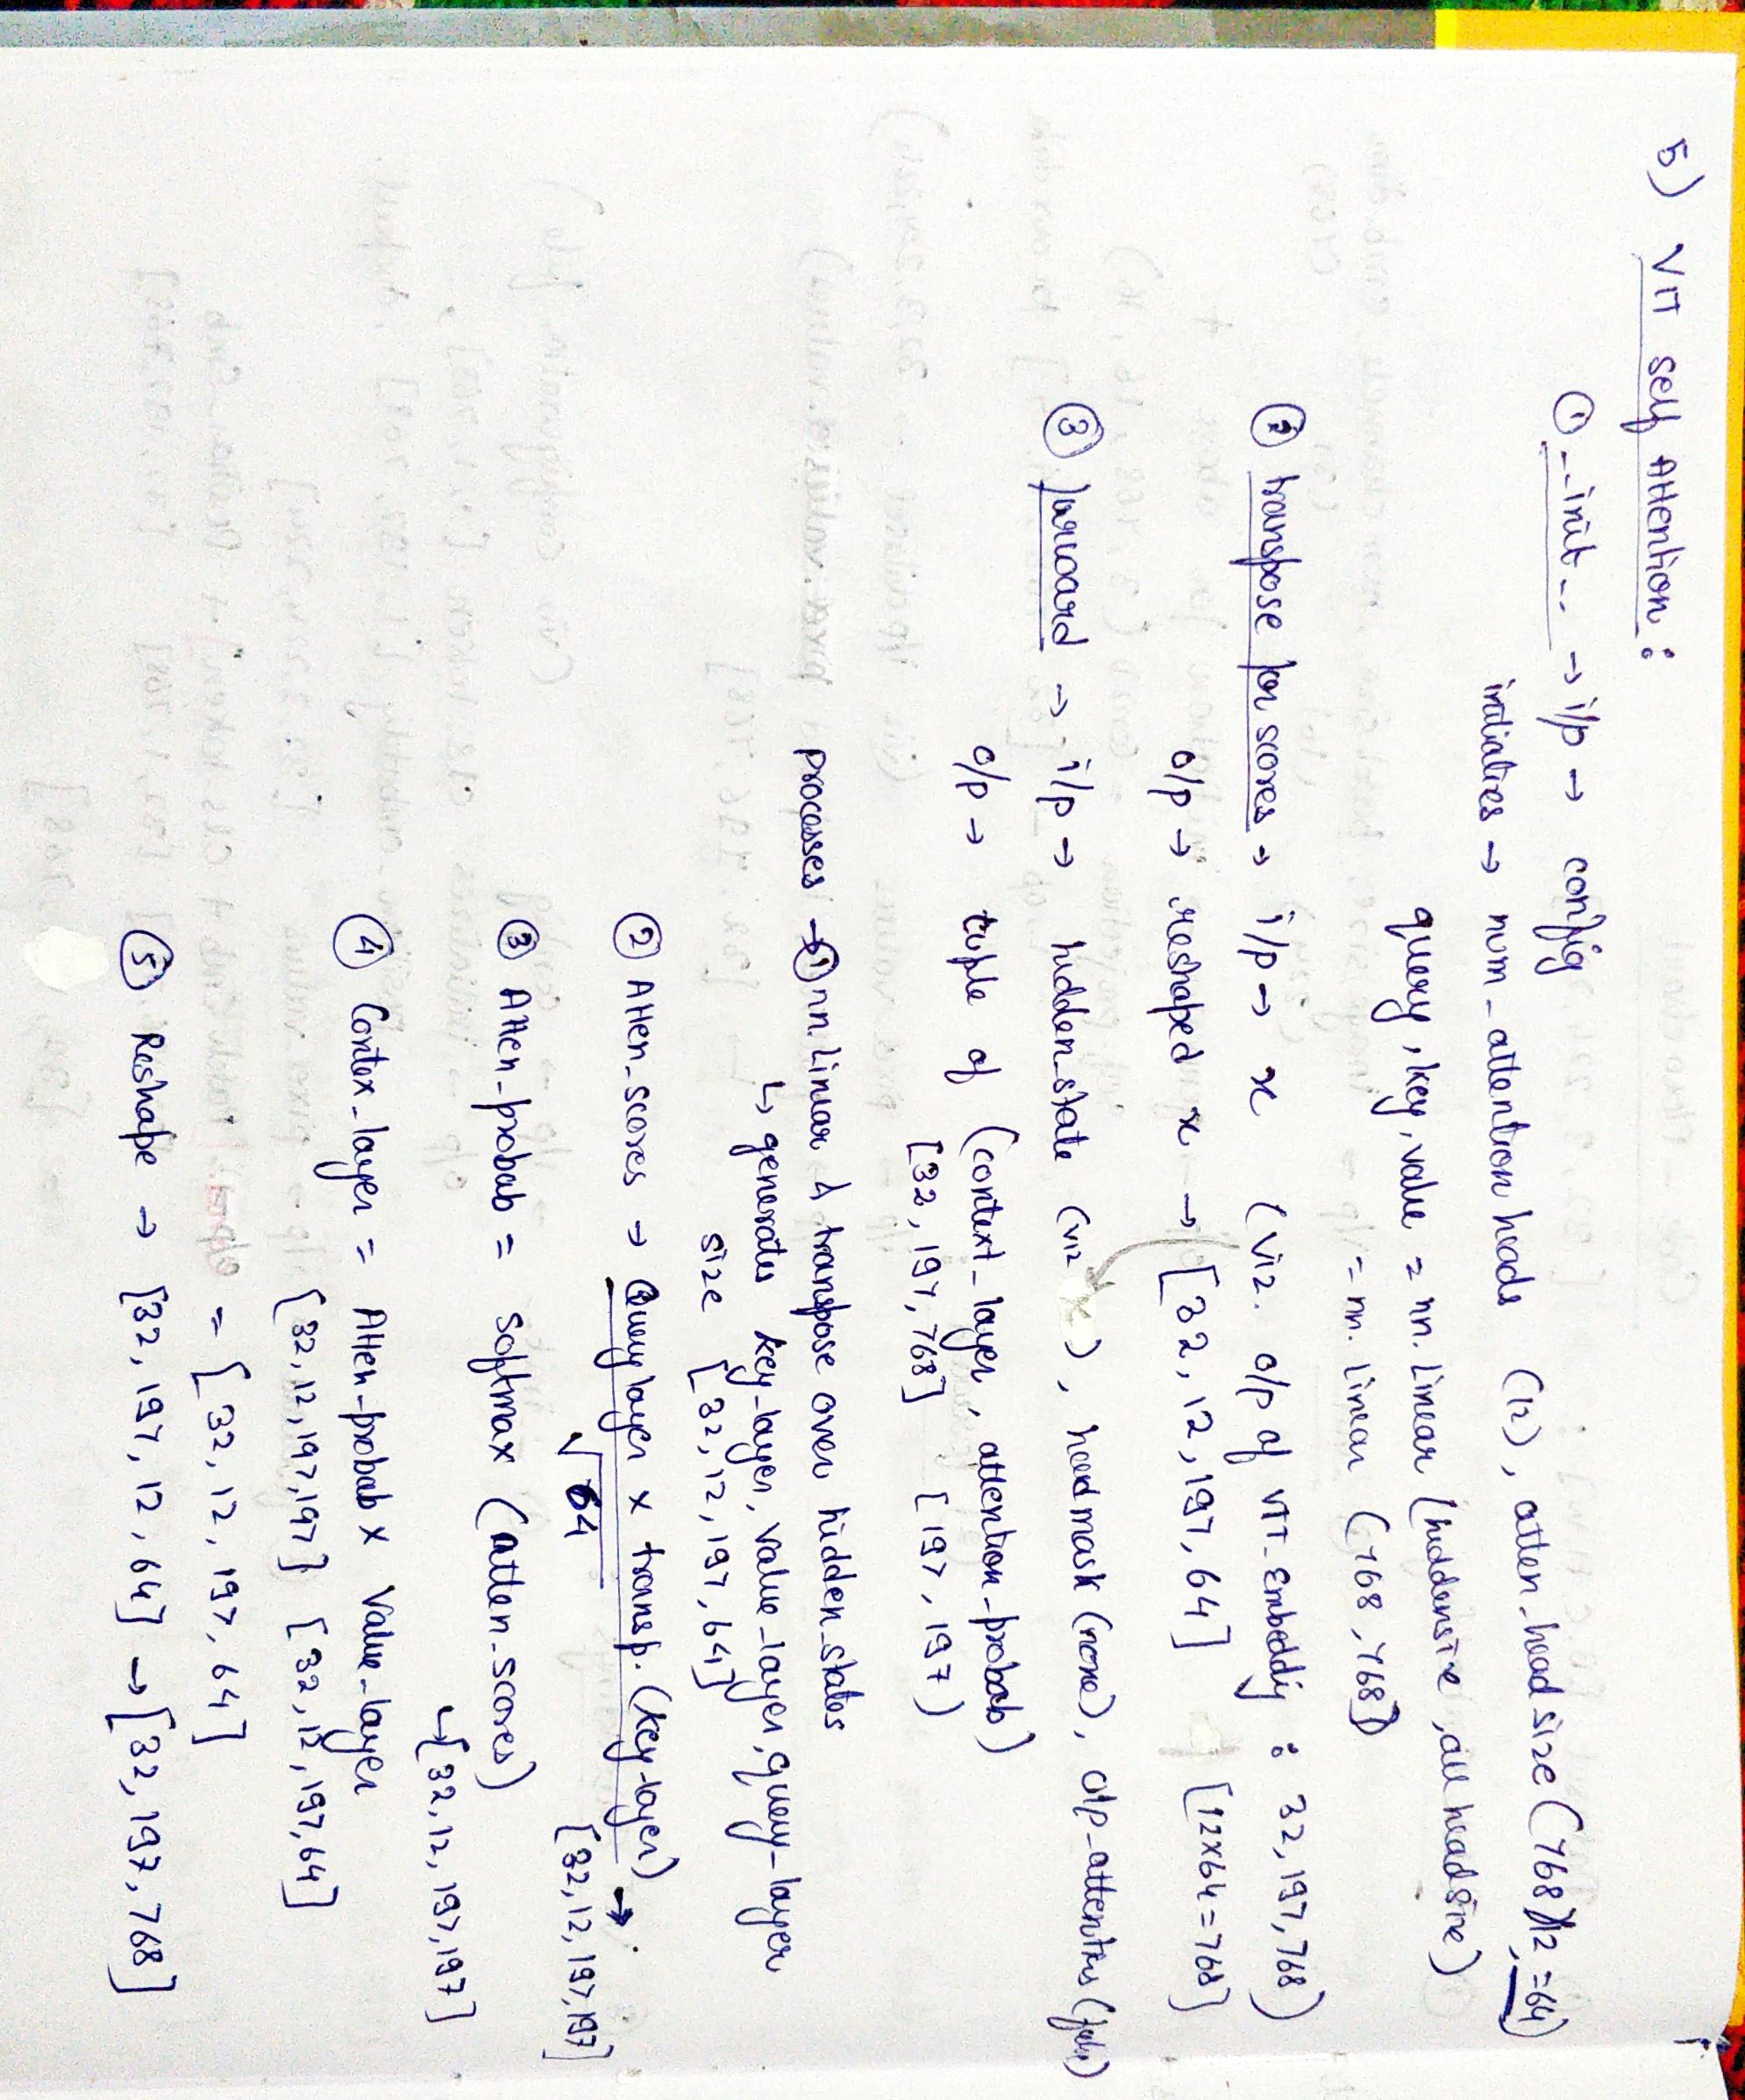 5) ViT self Attention :
① __init__ → i/p → config
initialises → num_attention heads (12), atten_head size (768)/12 = 64)
query, key, value = nn.Linear (hiddensize, all headsize)
= nn.Linear (768, 768)
② transpose for scores → i/p → x (viz. o/p of ViT_Embeddig : 32, 197, 768)
o/p → reshaped x → [32, 12, 197, 64] [12x64 = 768]
③ forward → i/p → hidden_state (viz x), headmask (none), o/p_attentions (false)
o/p → tuple of (context_layer, attention_probab)
[32, 197, 768] [197, 197)
processes → ① nn.Linear & transpose over hidden_states
↳ generates key_layer, value_layer, query_layer
size [32, 12, 197, 64]
② Atten_scores → Query layer x transp. (key_layer) →
√64 [32, 12, 197, 197]
③ Atten_probab = softmax (atten_scores)
↳ [32, 12, 197, 197]
④ Contex_layer = Atten_probab x Value_layer
[32, 12, 197, 197] [32, 12, 197, 64]
= [32, 12, 197, 64]
⑤ Reshape → [32, 197, 12, 64] → [32, 197, 768]